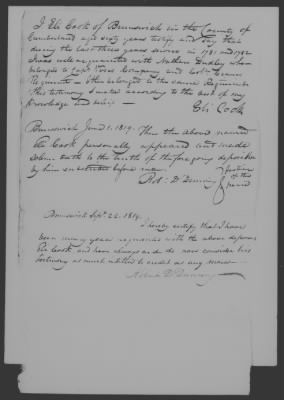 I Eli Cook of Brunswick in the County of
Cumberland age sixty years testify and say that
during the last three years service in 1781 and 1782
I was well acquainted with Nathan Dudley whom
belonged to Capt Company and Col.
Regiment — I then belonged to the same Regiment
This testimony I make according to the best of my
Knowledge and belief —
Eli Cook
Brunswick June 1. 1819. Then the above named
Eli Cook personally appeared and made
solemn oath to the truth of the foregoing deposition
by him subscribed before me.
Robt D Dunning Justice of the peace
Brunswick Sept 22. 1819.
I hereby certify that I have
been many years acquainted with the above deponent
Eli Cook, and have always and do now consider his
testimony as much entitled to credit as any
Robert D Dunning